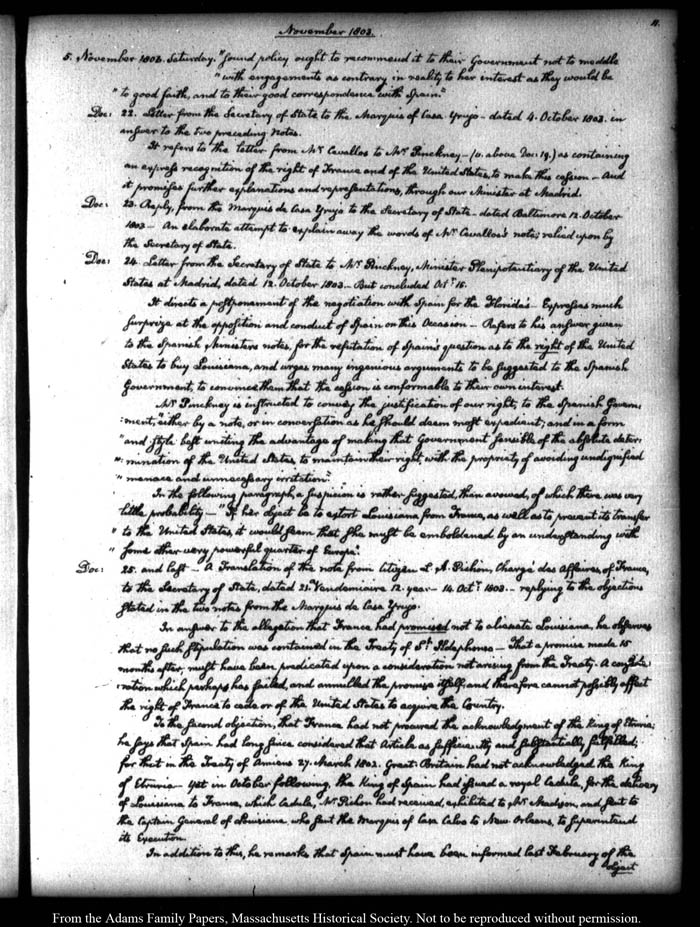 November 1803.
11.
5. November 1803. Saturday. "sound policy ought to recommend it to their Government not to meddle
"with engagements as contrary in reality to her interest as they would be
"to good faith, and to their good correspondence with Spain."
Doc: 22. Letter from the Secretary of State to the Marquis of Casa Yrujo — dated 4. October 1803. in
answer to the two preceding Notes.
It refers to the letter from Mr Cavallos to Mr Pinckney — (v. above Doc: 19.) as containing
an express recognition of the right of France and of the United States, to make this cession — And
it promises further explanations and representations, through our Minister at Madrid.
Doc: 23. Reply, from the Marquis de Casa Yrujo to the Secretary of State — dated Baltimore 12. October
1803 — An elaborate attempt to explain away the words of Mr Cavallos's note; relied upon by
the Secretary of State.
Doc: 24. Letter from the Secretary of State to Mr Pinckney, Minister Plenipotentiary of the United
States at Madrid, dated 12. October 1803 — But concluded Octr 15.
It directs a postponement of the negotiation with Spain for the Florida's — Expresses much
surprize at the opposition and conduct of Spain on this Occasion — Refers to his answer given
to the Spanish Ministers notes, for the refutation of Spain's question as to the right of the United
States to buy Louisiana, and urges many ingenious arguments to be suggested to the Spanish
Government, to convince them that the cession is conformable to their own interest.
Mr Pinckney is instructed to convey the justification of our right, to the Spanish Govern:
:ment, "either by a note, or in conversation as he should deem most expedient; and in a form
"and style best uniting the advantage of making that Government sensible of the absolute deter:
":mination of the United States, to maintain their right with the propriety of avoiding undignified
"menace and unnecessary irritation".
In the following paragraph, a suspicion is rather suggested, than avowed, of which there was very
little probability — "If her object be to extort Louisiana from France, as well as to prevent its transfer
"to the United States, it would seem that she must be emboldened by an understanding with
"some other very powerful quarter of Europe."
Doc: 25. and last — A Translation of the note from Citizen L. A. Pichon, Chargé des Affaires of France,
to the Secretary of State, dated 21. Vendemiaire 12. year — 14. Octr 1803. — replying to the objections
stated in the two notes from the Marquis de Casa Yrujo.
In answer to the allegation that France had promised not to alienate Louisiana, he observes
that no such stipulation was contained in the Treaty of St Ildephonso — That a promise made 15
months after, must have been predicated upon a consideration not arising from the Treaty. A conside:
:ration which perhaps has failed, and annulled the promise itself; and therefore cannot possibly affect
the right of France to cede or of the United States to acquire the Country.
To the second objection, that France had not procured the acknowledgment of the King of Etruria;
he says that Spain had long since considered that Article as sufficiently and substantially fulfilled;
for that in the Treaty of Amiens 27. March 1802. Great-Britain had not acknowledged the King
of Etruria — Yet in October following, the King of Spain had issued a royal Cedula, for the delivery
of Louisiana to France, which Cedula, Mr Pichon had received, exhibited to Mr Madison, and sent to
the Captain General of Louisiana, who sent the Marquis of Casa Calvo to New Orleans, to superintend
its Execution.
In addition to this, he remarks that Spain must have been informed last February of the
object
From the Adams Family Papers, Massachusetts Historical Society. Not to be reproduced without permission.